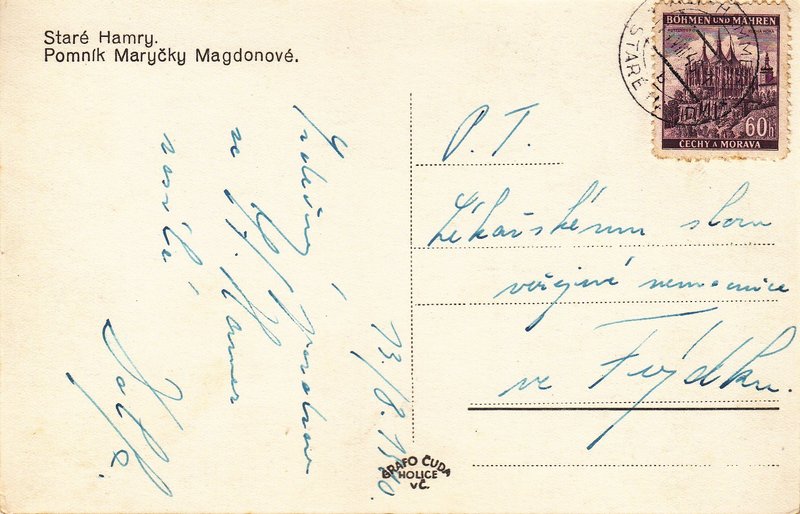 Staré Hamry.
Pomník Maryčky Magdonové.
BÖHMEN UND MÄHREN
60h
ČECHY A MORAVA
STARÉ
P. T.
Lékařskému sboru
veřejné nemocnice
ve Frýdku.
Srdečný pozdrav
ze St. Hamer
zasílá
13/8. 1940.
GRAFO ČUDA
HOLICE
VČ.